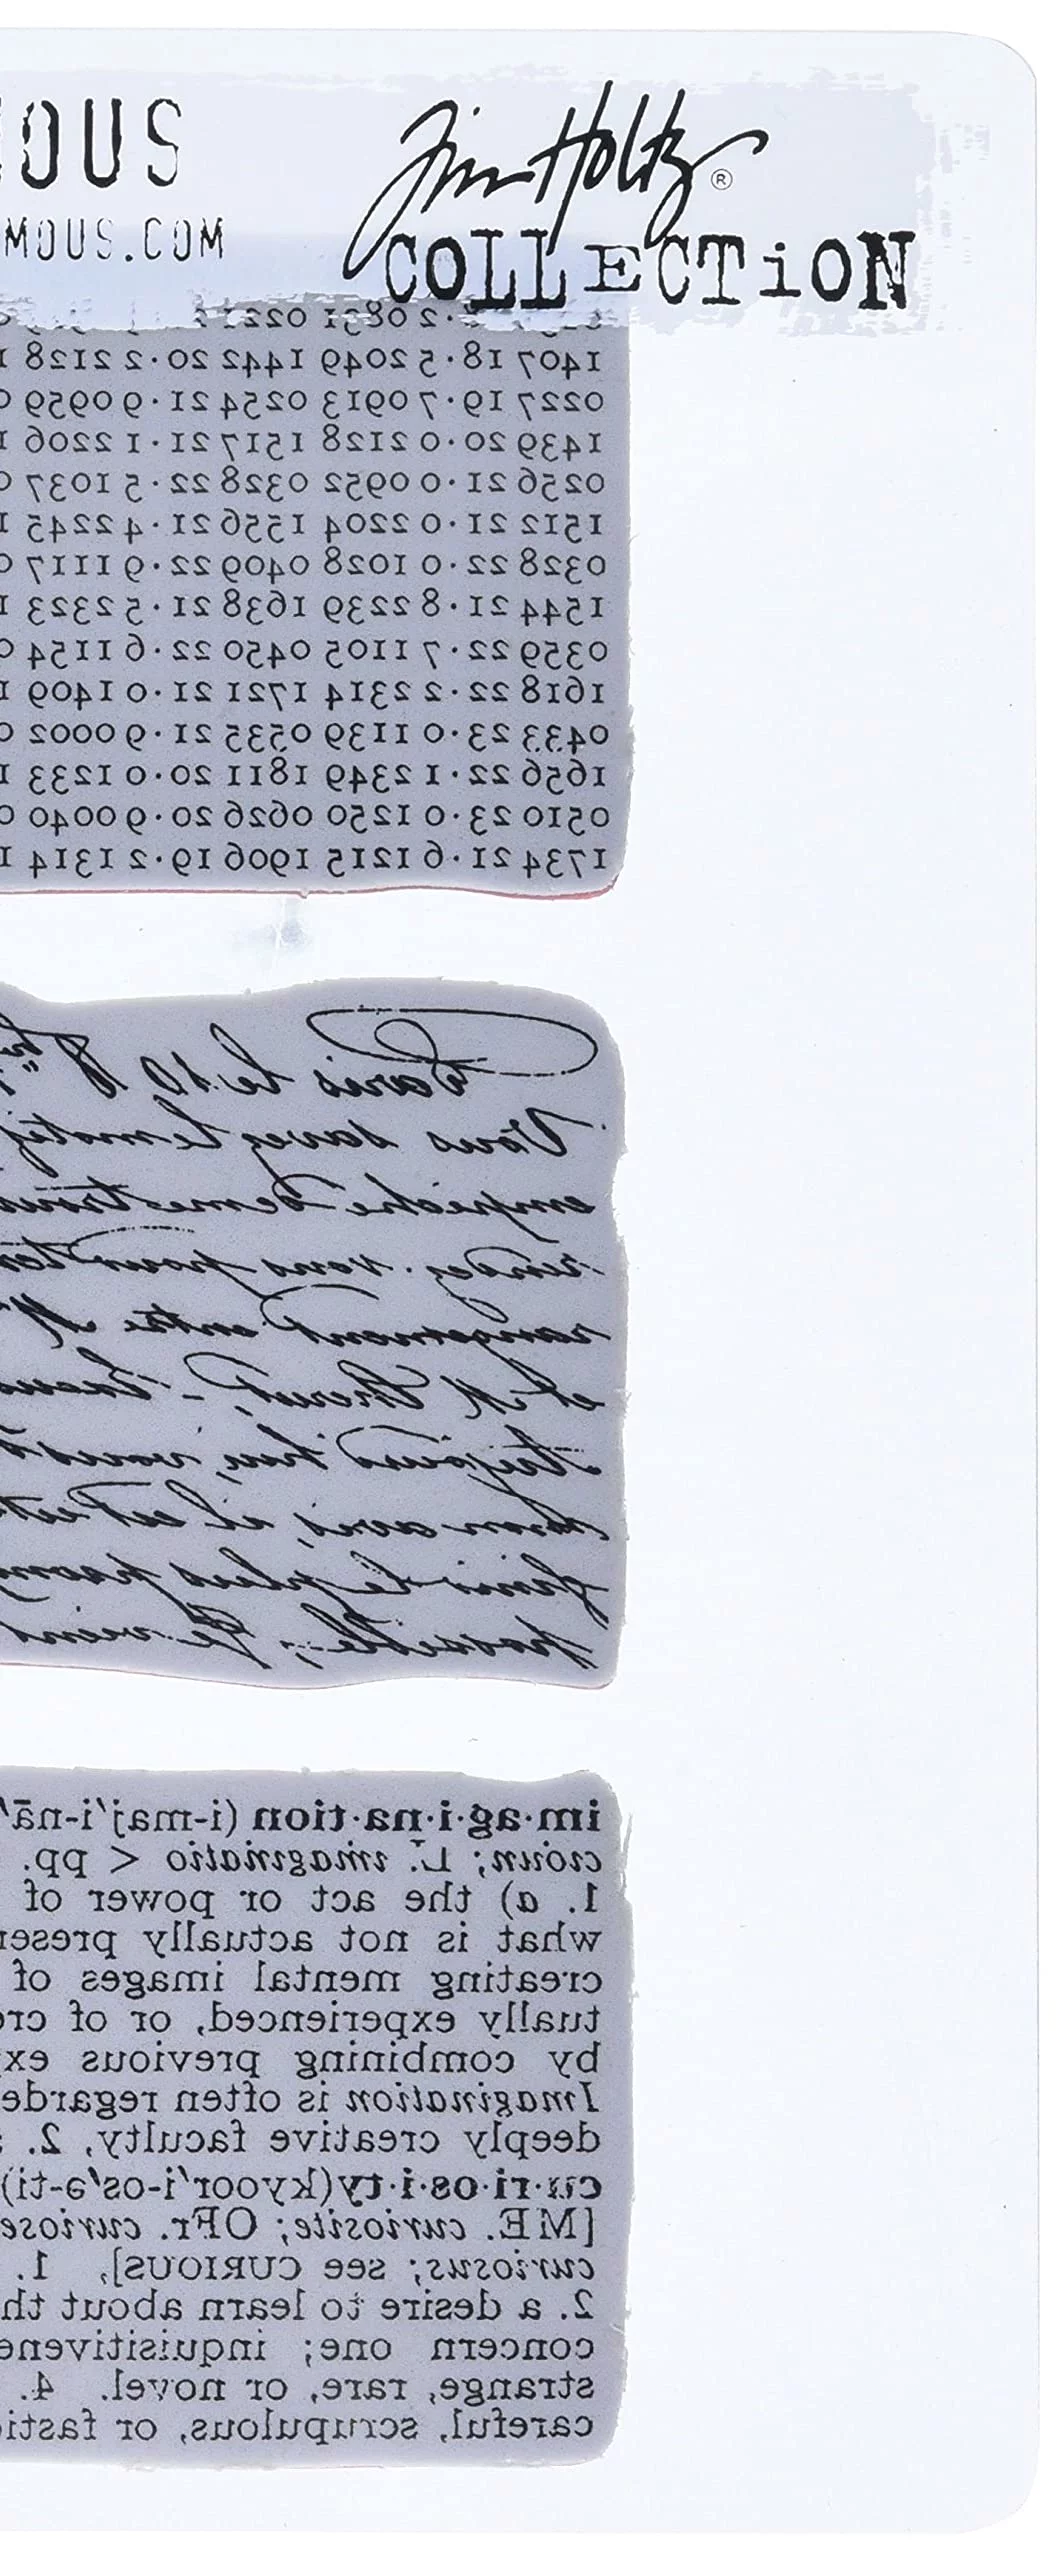 OUS
MOUS.COM
Tim Holtz®
COLLECTiON
2 0831 0221
1407 18·5 2049 1442 20·2 2128 1
0227 19·7 0913 0254 21·9 0959 0
1439 20·0 2128 1517 21·1 2206 1
0256 21·0 0952 0328 22·5 1037 0
1512 21·0 2204 1556 21·4 2245 1
0328 22·0 1028 0409 22·9 1117 0
1544 21·8 2239 1638 21·5 2323 1
0359 22·7 1105 0450 22·6 1154 0
1618 22·2 2314 1721 21·0 1409 1
0433 23·0 1139 0535 21·9 0002 0
1656 22·1 2349 1811 20·0 1233 1
0510 23·0 1250 0626 20·9 0040 0
1734 21·6 1215 1906 19·2 1314 1
Paris le 10
Vous savez le motif
empêche de me trou
rendez vous pour ter
rangement entre M
et M
toujours lui, vous
mon avis, il est
finir le plus promp
possible; Je viens
im·ag·i·na·tion (i-maj'i-nā'
cioun; L. imaginatio < pp.
1. a) the act or power of
what is not actually presen
creating mental images of
tually experienced, or of cre
by combining previous ex
Imagination is often regarde
deeply creative faculty, 2.
cu·ri·os·i·ty(kyoor'i-os'ə-ti)
[ME. curiosite; OFr. curiose
curiosus; see CURIOUS], 1.
2. a desire to learn about th
concern one; inquisitivene
strange, rare, or novel. 4.
careful, scrupulous, or fasti